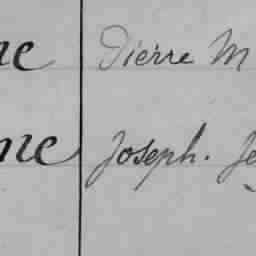 ne Pierre M
ne Joseph. Je